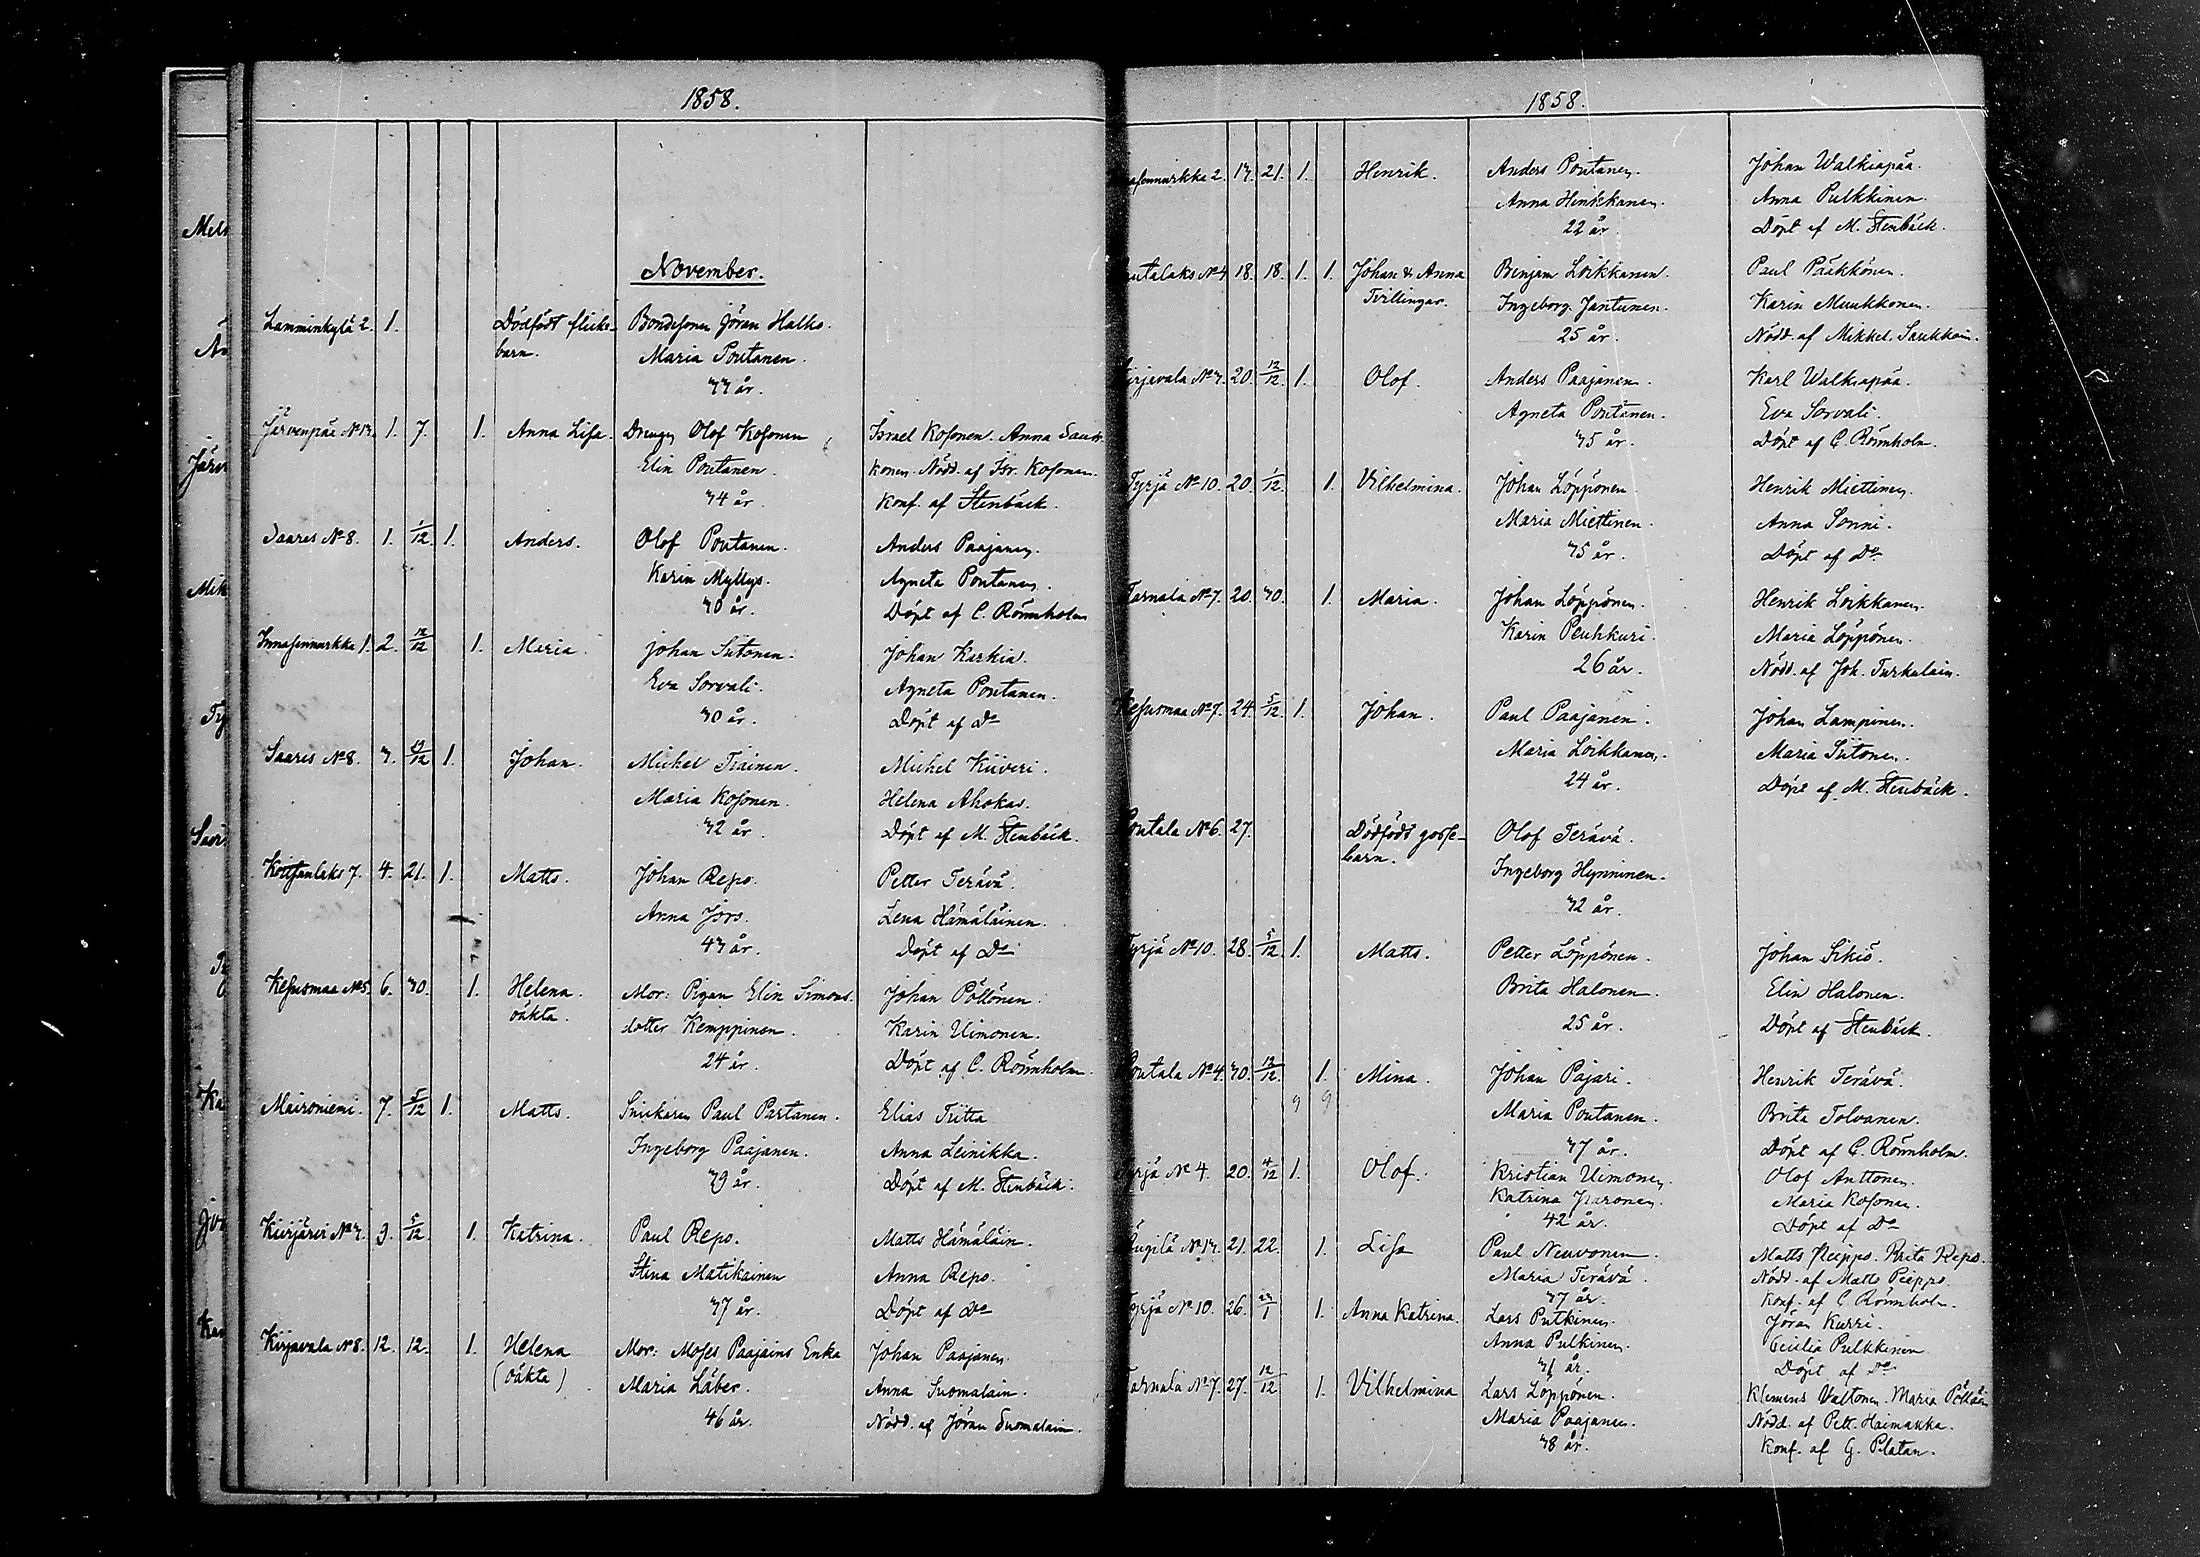 1858.
November.
Lamminkylä 2. 1. Dödfödt flicke- Bondesonen Jöran Halko.
barn. Maria Poutanen.
33 år.
Järvenpää No 13. 1. 7. 1. Anna Lisa. Drengen Olof Kosonen Israel Kosonen. Anna Sauk-
Elin Poutanen. konen. Nödd. af Isr. Kosonen.
34 år. Konf. af Stenbäck.
Saares No 8. 1. 1/12. 1. Anders. Olof Poutanen. Anders Paajanen.
Karin Myllys. Agneta Poutanen.
30 år. Döpt af C. Rönnholm
Innasennurkka 1. 2. 12/12 1. Maria. Johan Siitonen. Johan Karhia.
Eva Sorvali. Agneta Poutanen.
30 år. Döpt af Do
Saares No 8. 3. 19/12 1. Johan. Michel Tiainen. Michel Kiiveri.
Maria Kosonen. Helena Ahokas.
32 år. Döpt af M. Stenbäck.
Koitsanlaks 7. 4. 21. 1. Matts. Johan Repo. Petter Terävä.
Anna Jors. Lena Hämäläinen.
43 år. Döpt af Do
Kesusmaa No 5. 6. 30. 1. Helena. Mor: Pigan Elin Simons- Johan Pöllönen.
oäkta. dotter Kemppinen. Karin Uimonen.
24 år. Döpt af C. Rönnholm.
Maironiemi. 7. 5/12 1. Matts. Snickaren Paul Partanen. Elias Tiitta
Ingeborg Paajanen. Anna Leinikka.
39 år. Döpt af M. Stenbäck.
Kivijärvi No 3. 9. 5/12. 1. Katrina. Paul Repo. Matts Hämäläin.
Stina Matikainen Anna Repo.
37 år. Döpt af Do
Kirjavala No 8. 12. 12. 1. Helena Mor: Moses Paajains Enka Johan Paajanen.
(oäkta) Maria Läber. Anna Suomalain.
46 år. Nödd. af Jöran Suomalain.
1858.
asennurkka 2. 13. 21. 1. Henrik. Anders Poutanen. Johan Walkiapää.
Anna Hinkkanen. Anna Pulkkinen.
22 år. Döpt af M. Stenbäck.
utalaks No 4 18. 18. 1. 1. Johan & Anna Benjam Loikkanen. Paul Pääkkönen.
Tvillingar. Ingeborg Jantunen. Karin Muukkonen.
25 år. Nödd. af Mikkel Saukkoin.
irjavala No 3. 20. 12/12. 1. Olof. Anders Paajanen. Karl Walkiapää.
Agneta Poutanen. Eva Sorvali.
35 år. Döpt af C. Rönnholm.
Tyrjä No 10. 20. 1/12. 1. Vilhelmina. Johan Löppönen. Henrik Miettinen.
Maria Miettinen. Anna Sonni.
35 år. Döpt af Do
Tarnala No 7. 20. 30. 1. Maria. Johan Löppönen. Henrik Loikkanen.
Karin Peuhkuri. Maria Löppönen.
26 år. Nödd. af Joh. Turkulain.
Kesusmaa No 7. 24. 5/12. 1. Johan. Paul Paajanen. Johan Lampinen.
Maria Loikkanen. Maria Siitonen.
24 år. Döpt af M. Stenbäck.
outala No 6. 27. Dödfödt gosse- Olof Terävä.
barn. Ingeborg Hynninen.
32 år.
yrjä No 10. 28. 5/12 1. Matts. Petter Löppönen. Johan Sikiö.
Brita Halonen. Elin Halonen.
25 år. Döpt af Stenbäck.
outala No 4. 30. 12/12. 1. Mina. Johan Pajari. Henrik Terävä.
9 9 Maria Poutanen. Brita Tolvanen.
37 år. Döpt af C. Rönnholm.
yrjä No 4. 20. 4/12 1. Olof. Kristian Uimonen. Olof Anttonen.
Katrina Ikäronen. Maria Kosonen.
42 år. Döpt af Do
No 13. 21. 22. 1. Lisa Paul Neuvonen. Matts Pieppo. Brita Repo.
Maria Terävä. Nödd. af Matts Pieppo.
37 år. Konf. af C. Rönnholm.
yrjä No 10. 26. 23/1 1. Anna Katrina. Lars Putkinen. Jöran Kurri.
Anna Pulkinen. Cecilia Pulkkinen
31 år. Döpt af Do
Tarnala No 7. 27. 12/12 1. Vilhelmina Lars Löppönen. Klemens Valtonen. Maria Pöllän
Maria Paajanen. Nödd. af Pett. Haimakka.
38 år. Konf. af G. Platan.